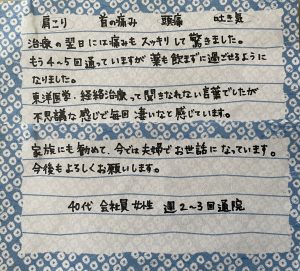 肩こり 首の痛み 頭痛 吐き気
治療の翌日には痛みもスッキリして驚きました。
もう4~5回通っていますが薬も飲まずに過ごせるように
なりました。
東洋医学・経絡治療って聞きなれない言葉でしたが
不思議な感じで毎回凄いなと感じています。
家族にも勧めて、今では夫婦でお世話になっています。
今後もよろしくお願いします。
40代 会社員 女性 週2~3回通院